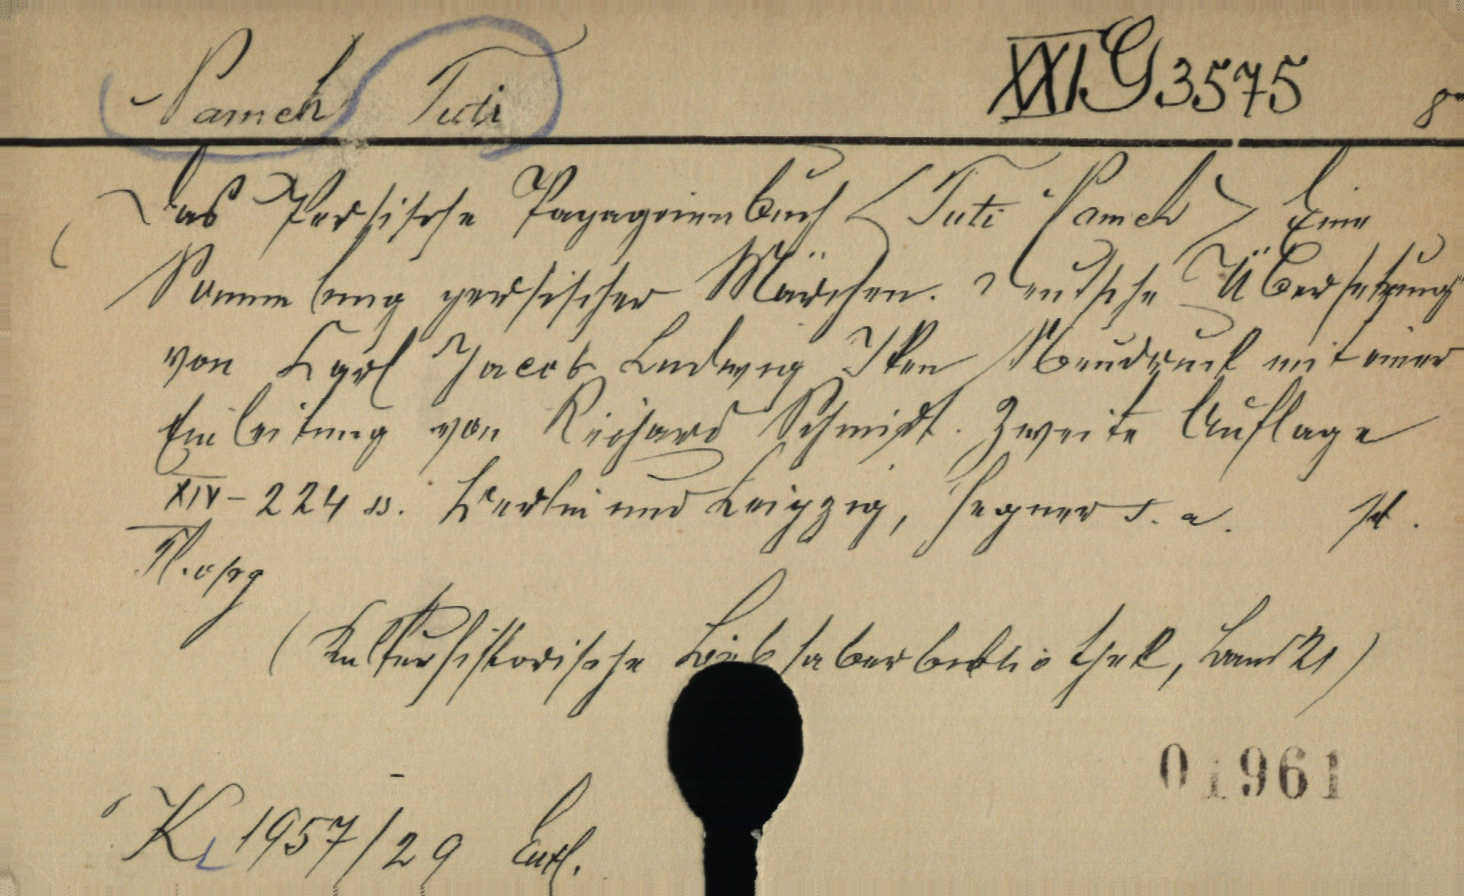 Nameh Tuti XXI G 3575 8°
Das Persische Papageienbuch <Tuti Nameh> Eine
Sammlung persischer Märchen. Deutsche Übersetzung
von Karl Jacob Ludwig Iken Neudruck mit einer
Einleitung von Richard Schmidt. Zweite Auflage
XIV-224 ss. Berlin und Leipzig, Hegner s. a.
(Kulturhistorische Liebhaberbibliothek, Band 21)
01961
K 1957/29